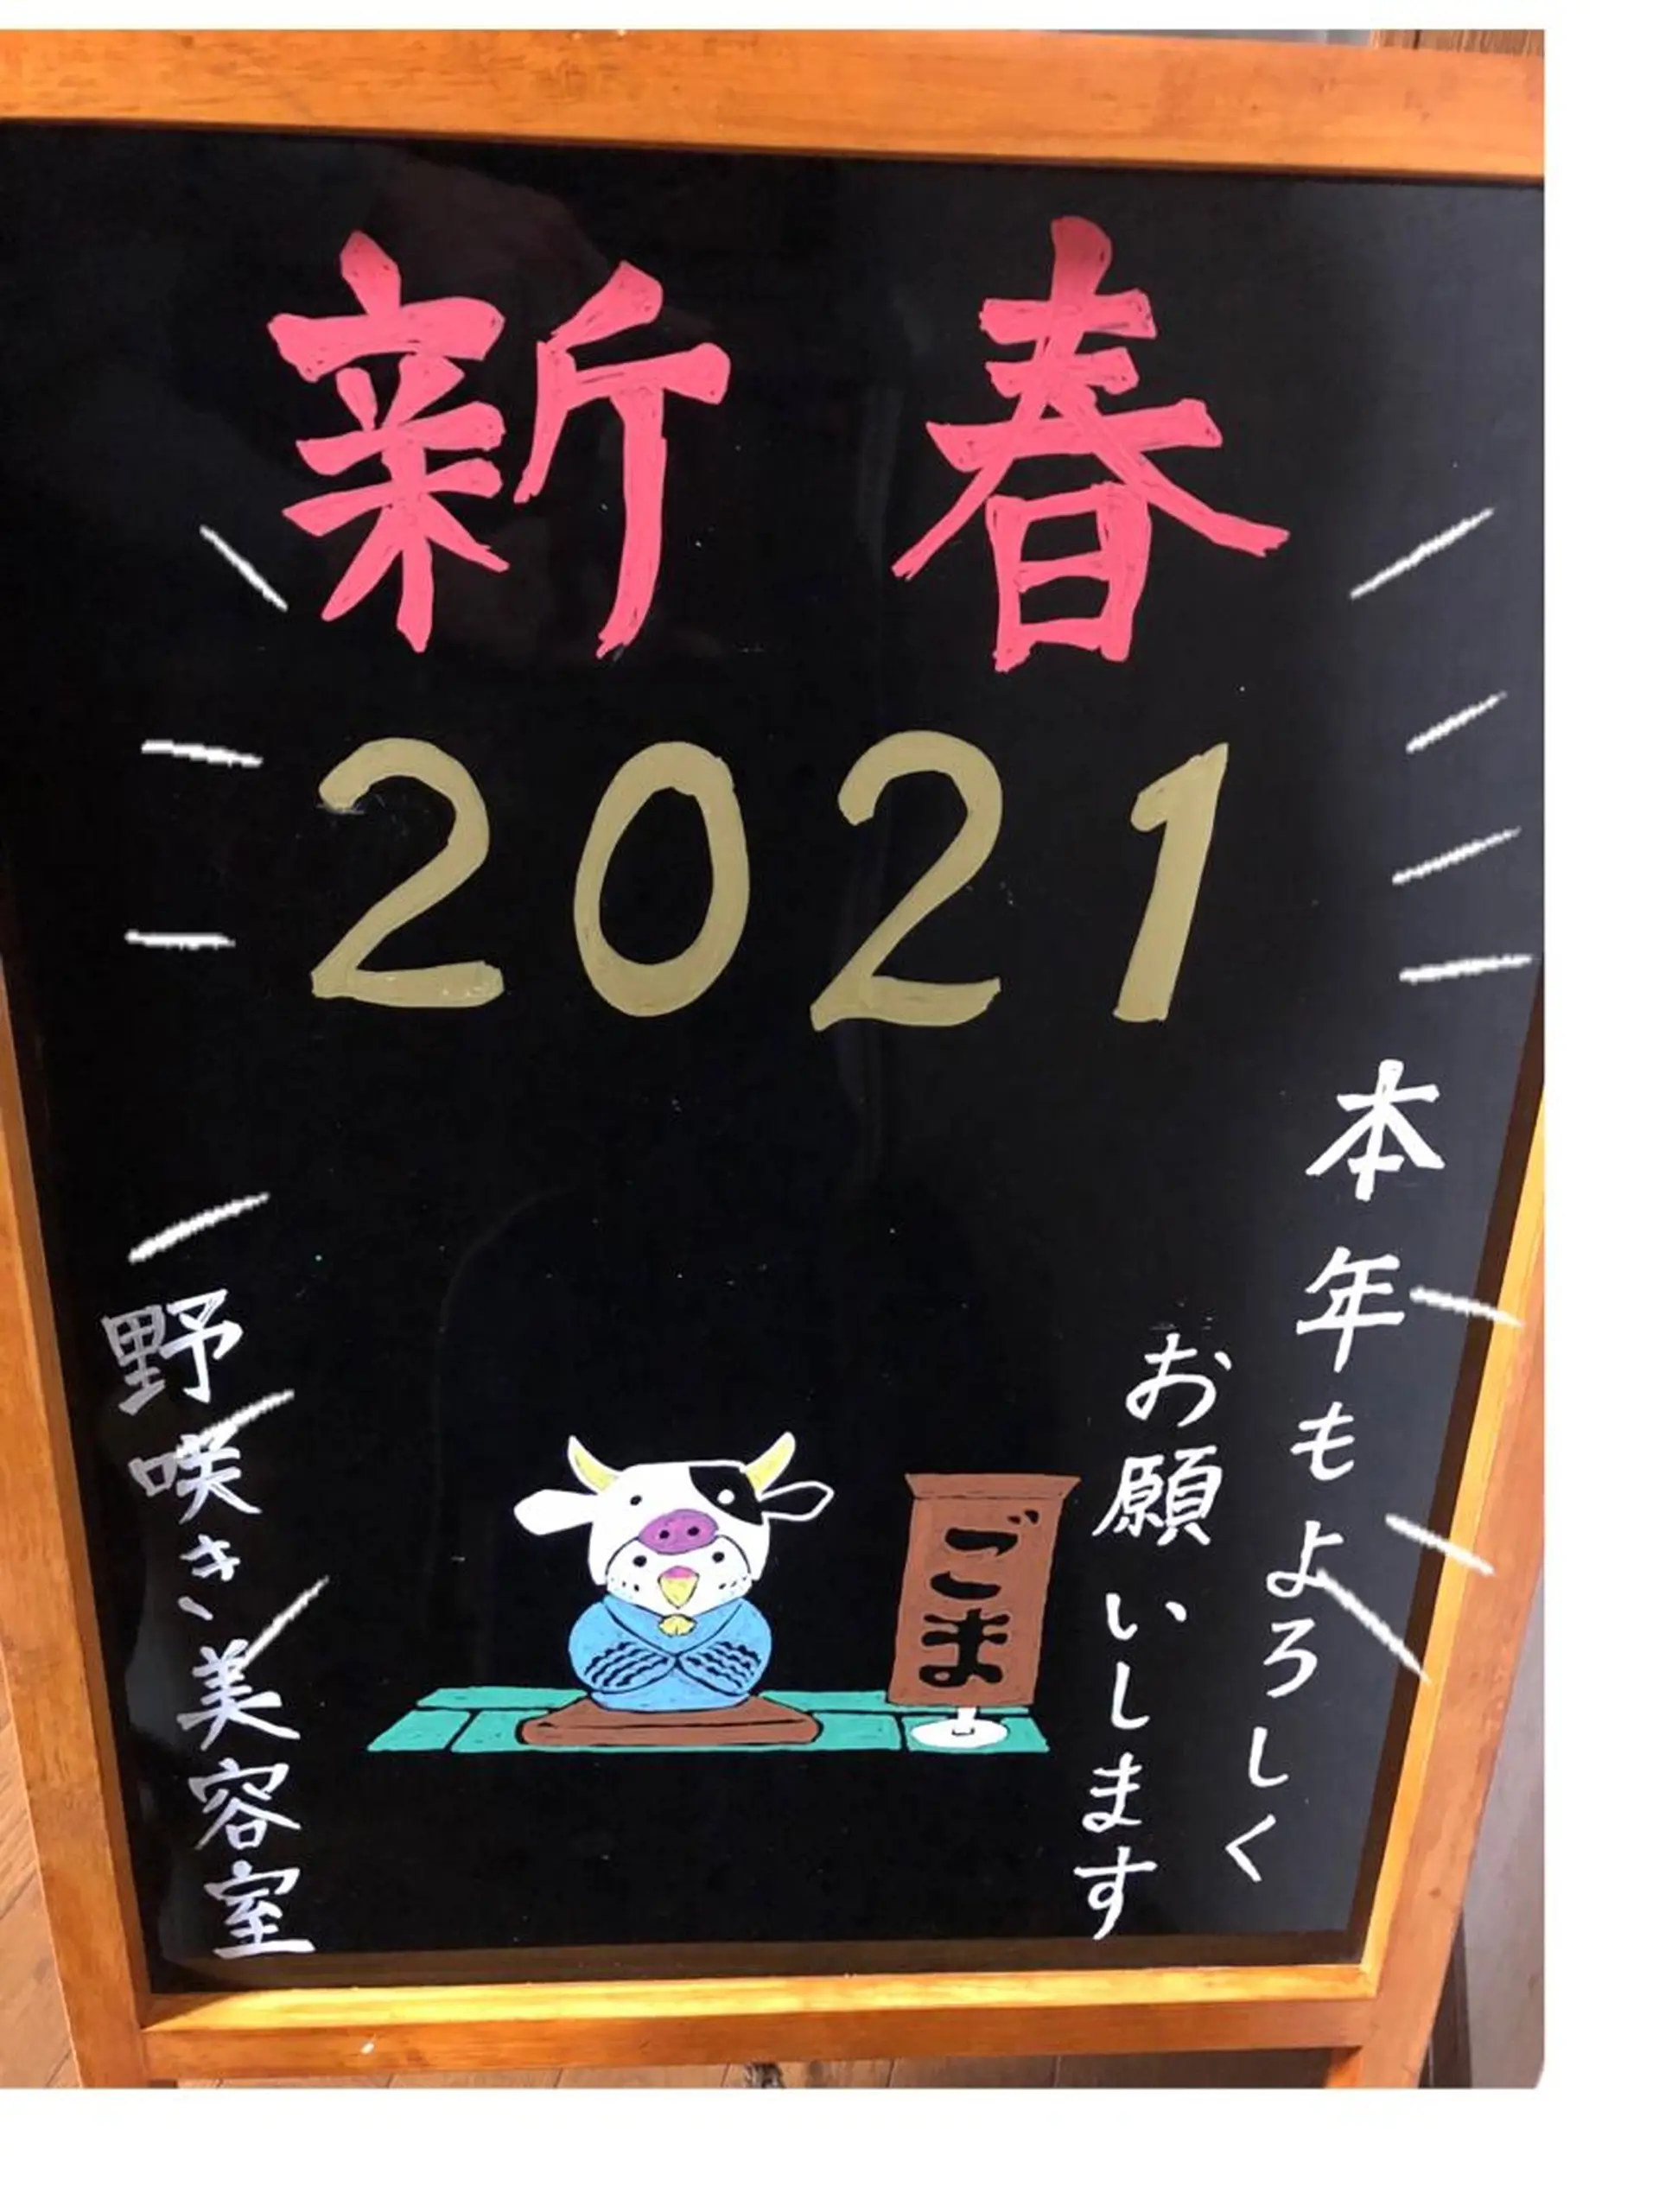 新春
2021
本年もよろしく
お願いします
ごま
野咲き美容室